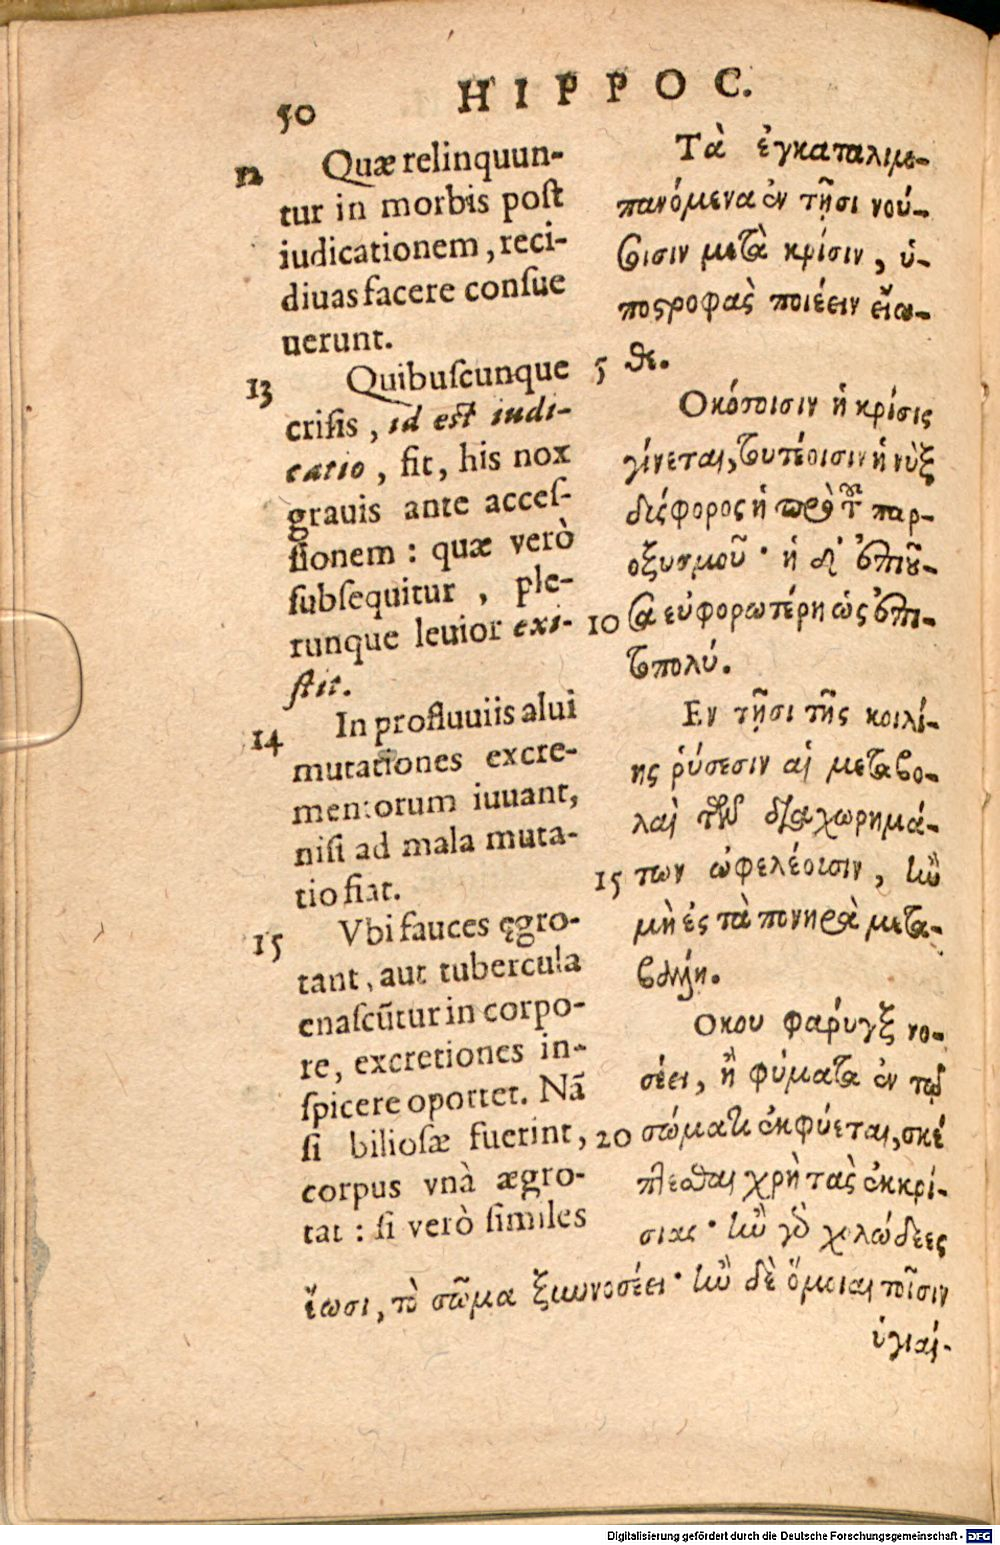 50 HIPPOC.
12 Quæ relinquun-
tur in morbis poſt
iudicationem, reci-
diuas facere conſue
uerunt.
13 Quibuſcunque
criſis, id eſt iudi-
catio, fit, his nox
grauis ante acceſ-
ſionem: quæ verò
ſubſequitur, ple-
runque leuior exi-
ſtit.
14 In profluuiis alui
mutationes excre-
mentorum iuuant,
niſi ad mala muta-
tio fiat.
15 Vbi fauces ęgro-
tant, aut tubercula
enaſcũtur in corpo-
re, excretiones in-
ſpicere oportet. Nã
ſi bilioſæ fuerint,
corpus vnà ægro-
tat: ſi verò ſimiles
Τὰ ἐγκαταλιμ-
πανόμενα ἐν τῇσι νού-
σισιν μετὰ κρίσιν, ὑ-
ποϛροφὰς ποιέειν εἴω-
5 θε.
Οκόσοισιν ἡ κρίσις
γίνεται, τουτέοισιν ἡ νὺξ
δύσφορος ἡ πρὸ τοῦ παρ-
οξυσμοῦ· ἡ δ' ἐπιοῦ-
10 σα εὐφορωτέρη ὡς ἐπι-
τοπολύ.
Εν τῇσι τῆς κοιλί-
ης ῥύσεσιν αἱ μεταβο-
λαὶ τῶν διαχωρημά-
15 των ὠφελέοισιν, ἢν
μὴ ἐς τὰ πονηρὰ μετα-
βάλῃ.
Οκου φαρύγξ νο-
σέει, ἢ φύματα ἐν τῷ
20 σώματι ἐκφύεται, σκέ
πτεσθαι χρὴ τὰς ἐκκρί-
σιας· ἢν γὸ χολώδεες
ἔωσι, τὸ σῶμα ξυννοσέει· ἢν δὲ ὅμοιαι τοῖσιν
ὑγιαί-
Digitalisierung gefördert durch die Deutsche Forschungsgemeinschaft - DFG